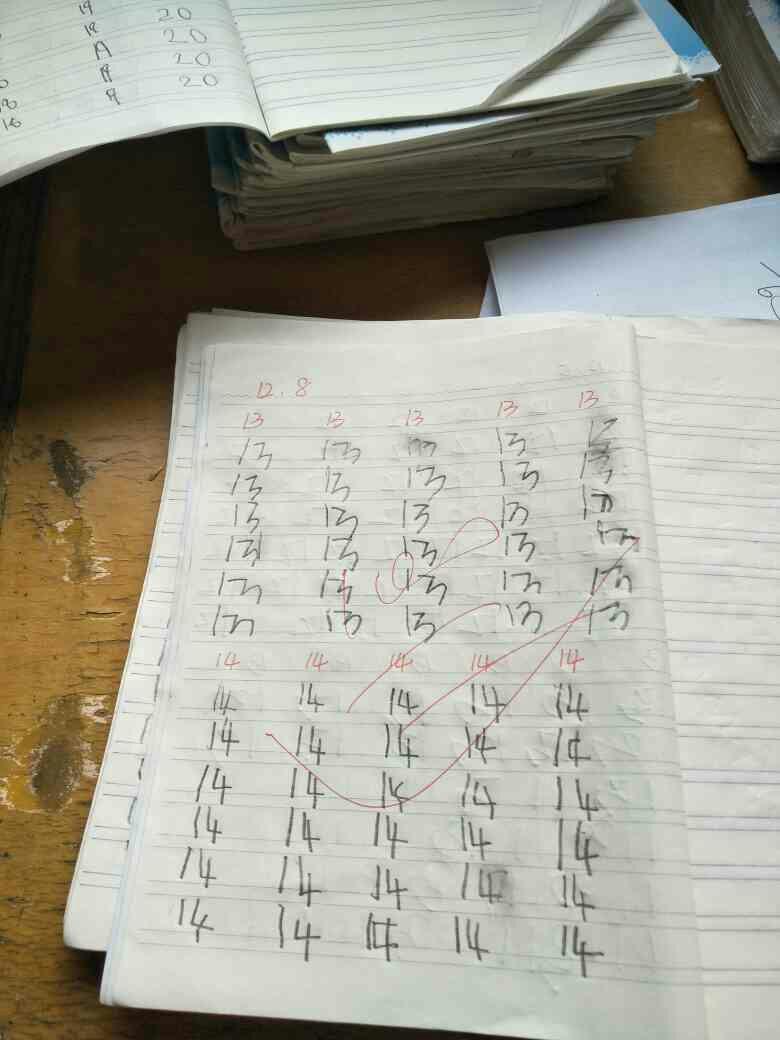 19 20
18 20
A 20
18 19 20
16 9
12.8
13 13 13 13 13
13 13 13 13 13
13 13 13 13 13
13 13 13 13 13
13 13 13 13 13
13 13 13 13 13
13 13 13 13 13
14 14 14 14 14
14 14 14 14 14
14 14 14 14 14
14 14 14 14 14
14 14 14 14 14
14 14 14 14 14
14 14 14 14 14